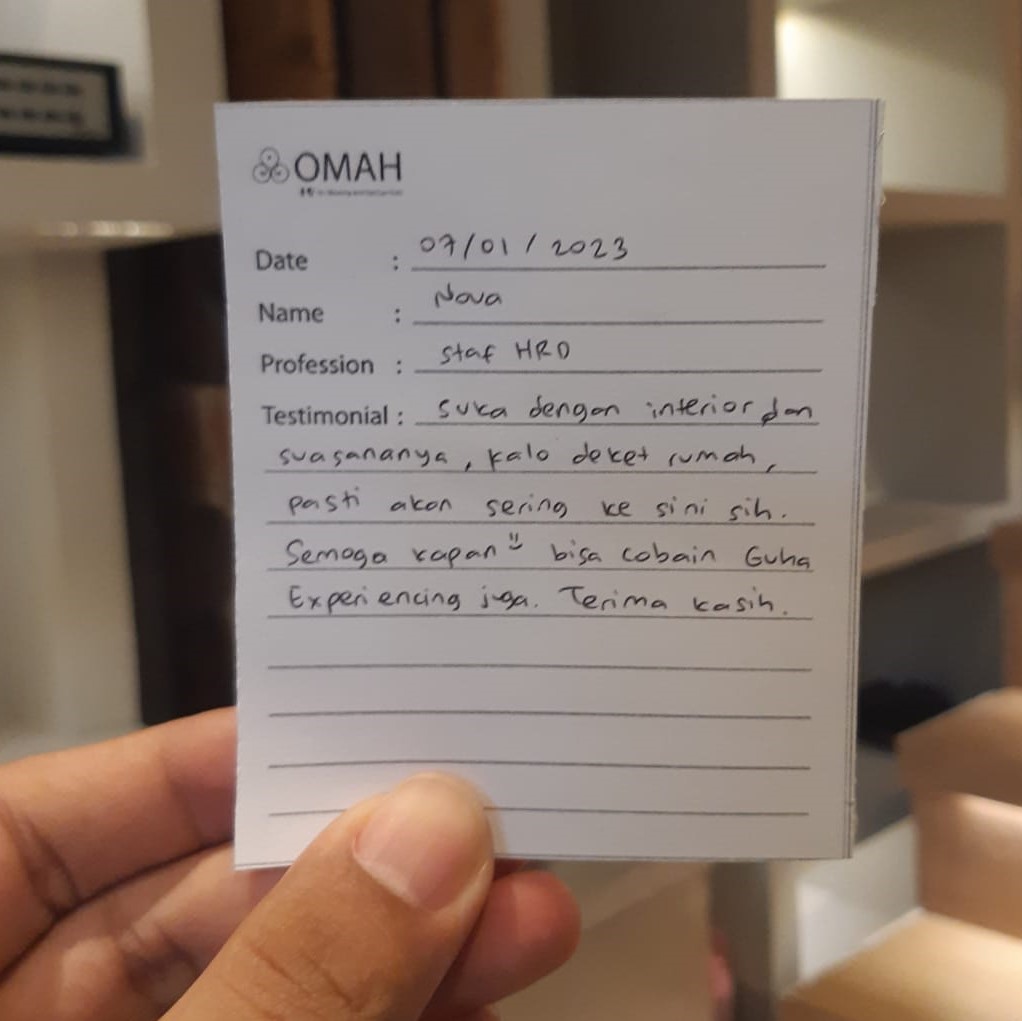 OMAH
Date : 07/01/2023
Name : Nova
Profession : Staf HRD
Testimonial : Suka dengan interior dan
suasananya, kalo deket rumah,
pasti akan sering ke sini sih.
Semoga kapan" bisa cobain Guha
Experiencing juga. Terima kasih.